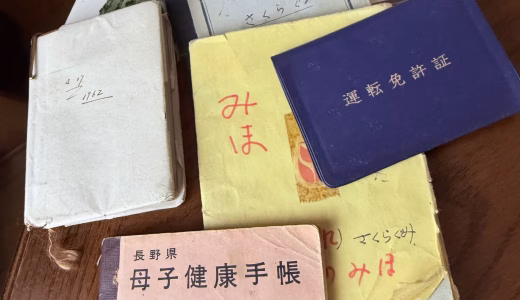 1962
さくらぐみ
運転免許証
みほ
さくらぐみ
みほ
長野県
母子健康手帳